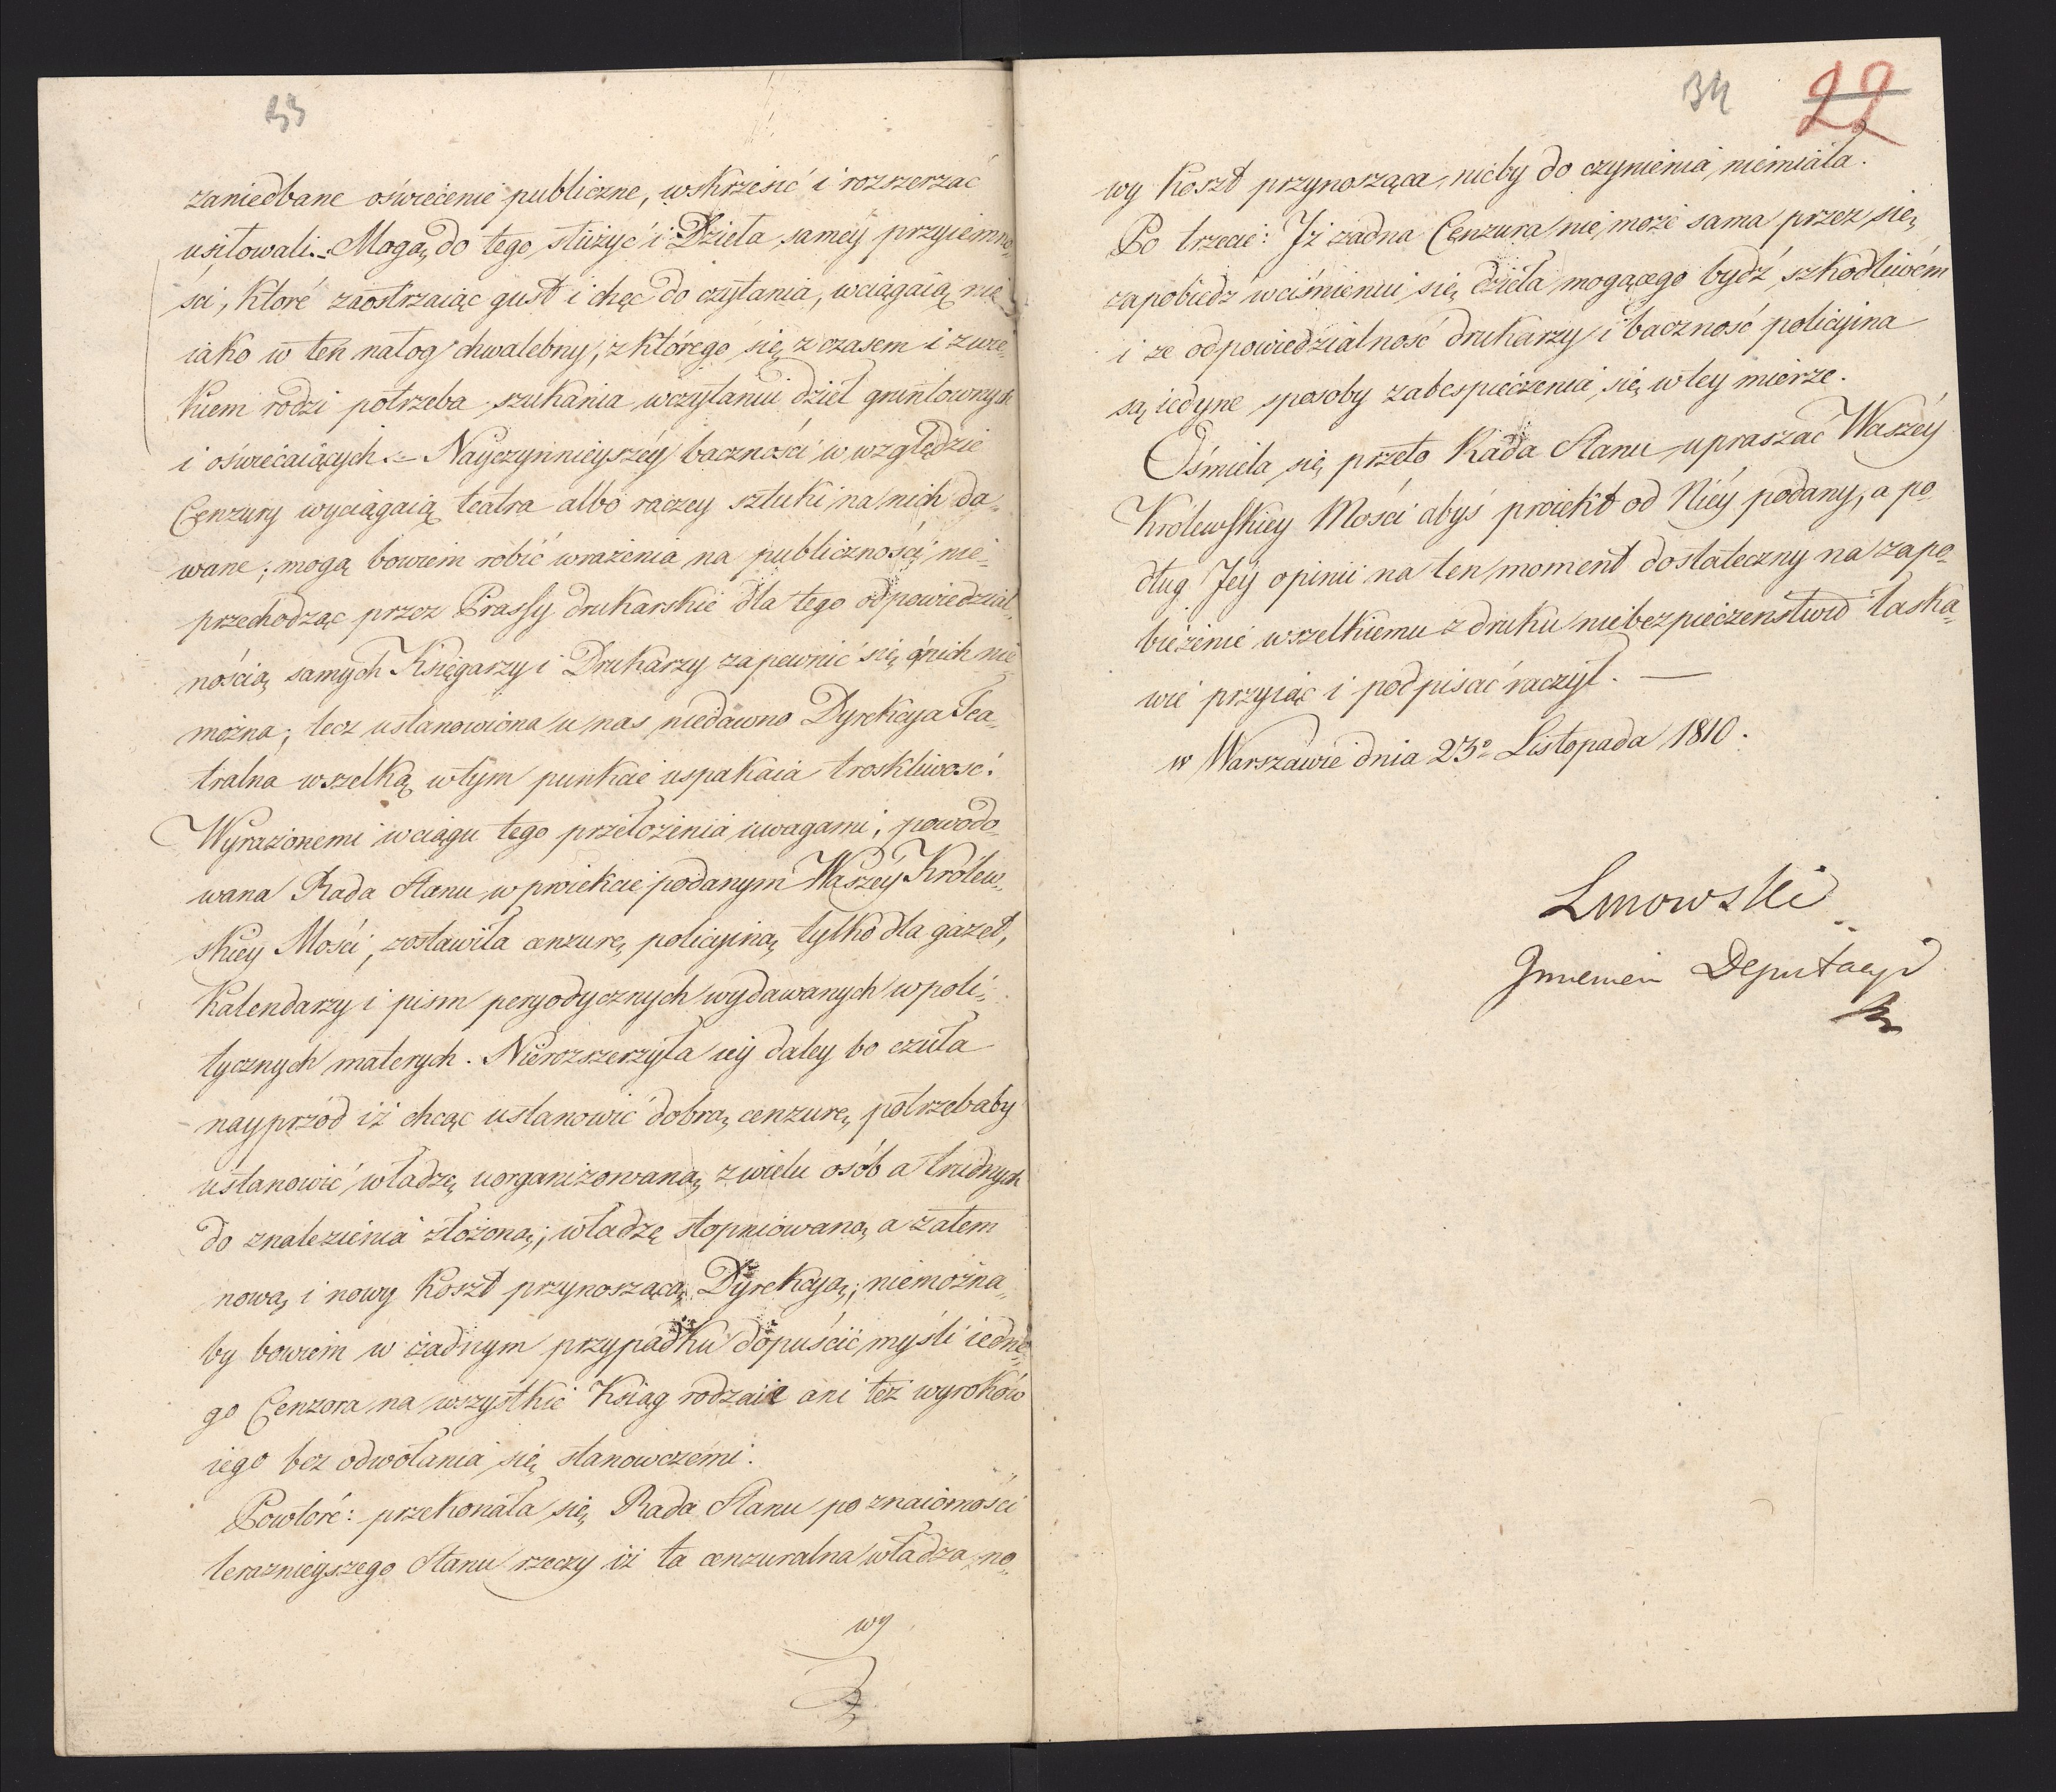 33
zaniedbane oświecenie publiczne, wskrzesić i rozszerzać
usiłowali. Mogą do tego służyć i Dzieła samey przyiemno-
ści, które zaostrzaiąc gust i chęc do czytania, wciągaią nie
iako w ten nałog chwalebny, z którego się z czasem i z wie-
kiem rodzi potrzeba szukania w czytaniu dzieł gruntownych
i oświecaiących. – Nayczynnieyszéy baczności w względzie
Cenzury wyciągaią teatra albo raczey sztuki na nich da-
wane; mogą bowiem robić wrażenia na publiczności nie-
przechodząc przez Prassy drukarskie dla tego odpowiedzial-
nością samych Księgarzy i Drukarzy zapewnić się o nich nie
można; lecz ustanowiona u nas niedawno Dyrekcya Tea-
tralna wszelką w tym punkcie uspakaia troskliwość.
Wyrażonemi w ciągu tego przełożenia uwagami, powodo-
wana Rada Stanu w proiekcie podanym Waszéy Królew-
skiey Mości, zostawiła cenzurę policyiną tylko dla gazet,
Kalendarzy i pism peryodycznych wydawanych w poli-
tycznych materych. Nierozszerzyła iey daley bo czuła
nayprzód iż chcąc ustanowić dobrą cenzurę, potrzebaby
ustanowić władzę uorganizowaną z wielu osób a trudnych
do znalezienia złożoną; władzę stopniowaną a zatem
nową i nowy koszt przynoszącą Dyrekcyą; niemożna-
by bowiem w żadnym przypadku dopuścić myśli iedne-
go Cenzora na wszystkie Ksiąg rodzaie ani też wyroków
iego bez odwołania się stanowczemi.
Powtóre: przekonała się Rada Stanu po znaiomości
teraznieyszego Stanu rzeczy iż ta cenzuralna władza no-
wy
34
22
wy Koszt przynosząca, nicby do czynienia niemiała.
Po trzecie: Iż żadna Cenzura nie może sama przez się
zapobiedz wciśnieniu się dzieła mogącego bydź szkodliwém
i że odpowiedzialność drukarzy i baczność policyina
są iedyne sposoby zabespieczenia się w tey mierze.
Ośmiela się przeto Rada Stanu upraszać Waszéy
Królewskiey Mości abyś proiekt od Niéy podany, a po-
dług Jéy opinii na ten moment dostateczny na zapo-
bieżenie wszelkiemu z druku niebezpieczeństwu łaska-
wie przyiąc i podpisać raczył. —
w Warszawie dnia 23º Listopada 1810.
Linowski
Imieniem Deputacyi